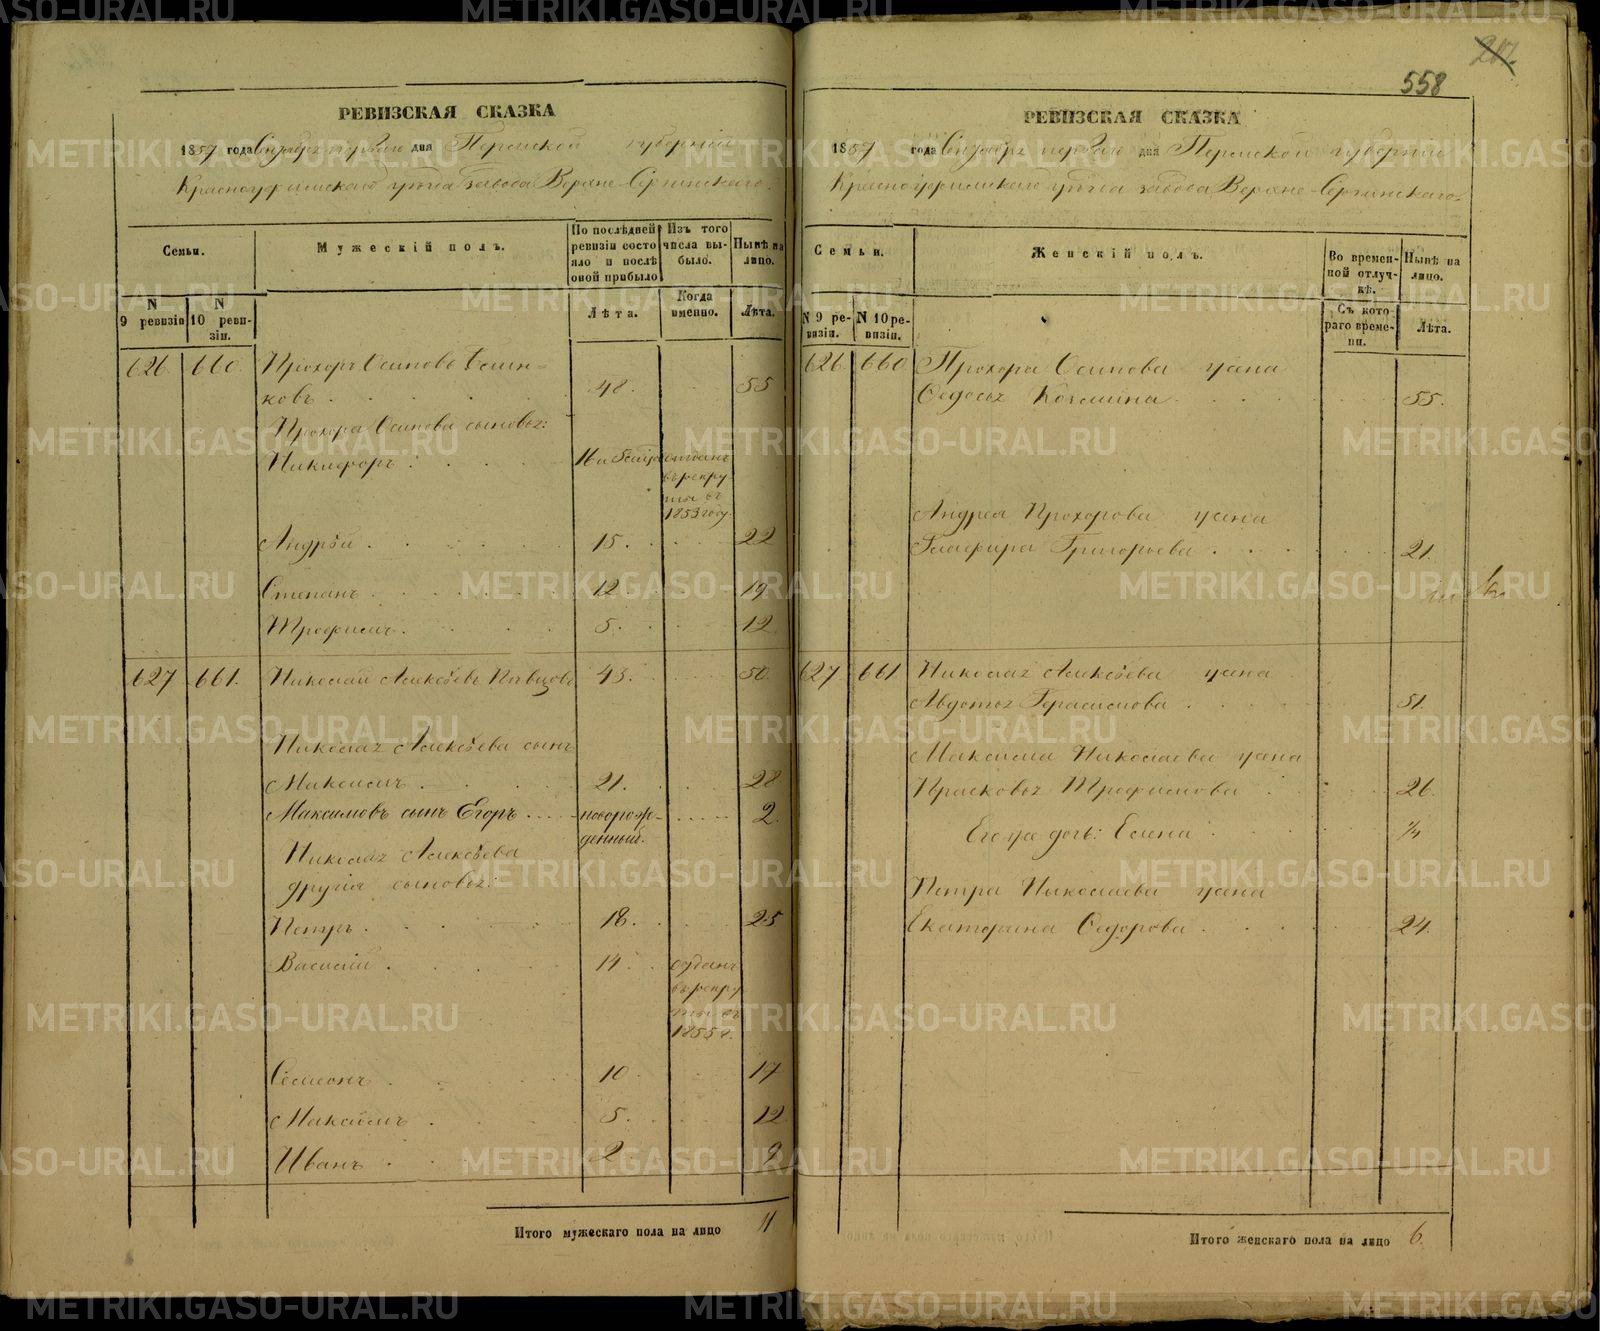 РЕВИЗСКАЯ СКАЗКА
1857 года Сентября перваго дня Пермской губерніи
Красноуфимскаго уѣзда завода Верхне-Сергинскаго.
Семьи.
Мужескій полъ.
По послѣдней ревизіи состояло и послѣ оной прибыло
Изъ того числа выбыло.
Нынѣ на лицо.
N 9 ревизіи
N 10 ревизіи.
Лѣта.
Когда именно.
Лѣта.
626 660 Прохоръ Осиповъ
ковъ 48. 55
Прохора Осипова сыновья:
Никифоръ 16 отданъ
въ рекру-
ты въ
1853 году.
Андрей 15. 22
Степанъ 12. 19
Трофимъ 5. 12
627 661. Николай Алексѣевъ Пѣвцовъ 43. 50.
Николая Алексѣева сынъ
Максимъ 21. 28
Максимовъ сынъ Егоръ новорож- 2.
денный.
Николая Алексѣева
другія сыновья:
Петръ 18. 25
Василій 14. отданъ
въ рекру
ты въ
1855 г.
Семенъ 10 17
Максимъ 5. 12
Иванъ 2 9
Итого мужескаго пола на лицо 11
558
217.
РЕВИЗСКАЯ СКАЗКА
1857 года Сентября перваго дня Пермской губерніи
Красноуфимскаго уѣзда завода Верхне-Сергинскаго.
Семьи.
Женскій полъ.
Во временной отлучкѣ.
Нынѣ на лицо.
N 9 ревизіи.
N 10 ревизіи.
Съ котораго времени.
Лѣта.
626 660 Прохора Осипова жена
Федосья Козмина 55.
Андрея Прохорова жена
Глафира Григорьева 21.
627 661 Николая Алексѣева жена
Авдотья Герасимова 51.
Максима Николаева жена
Прасковья Трофимова 26.
Его же дочь: Елена
Петра Николаева жена
Екатерина Федорова 24.
Итого женскаго пола на лицо 6.
METRIKI.GASO-URAL.RU